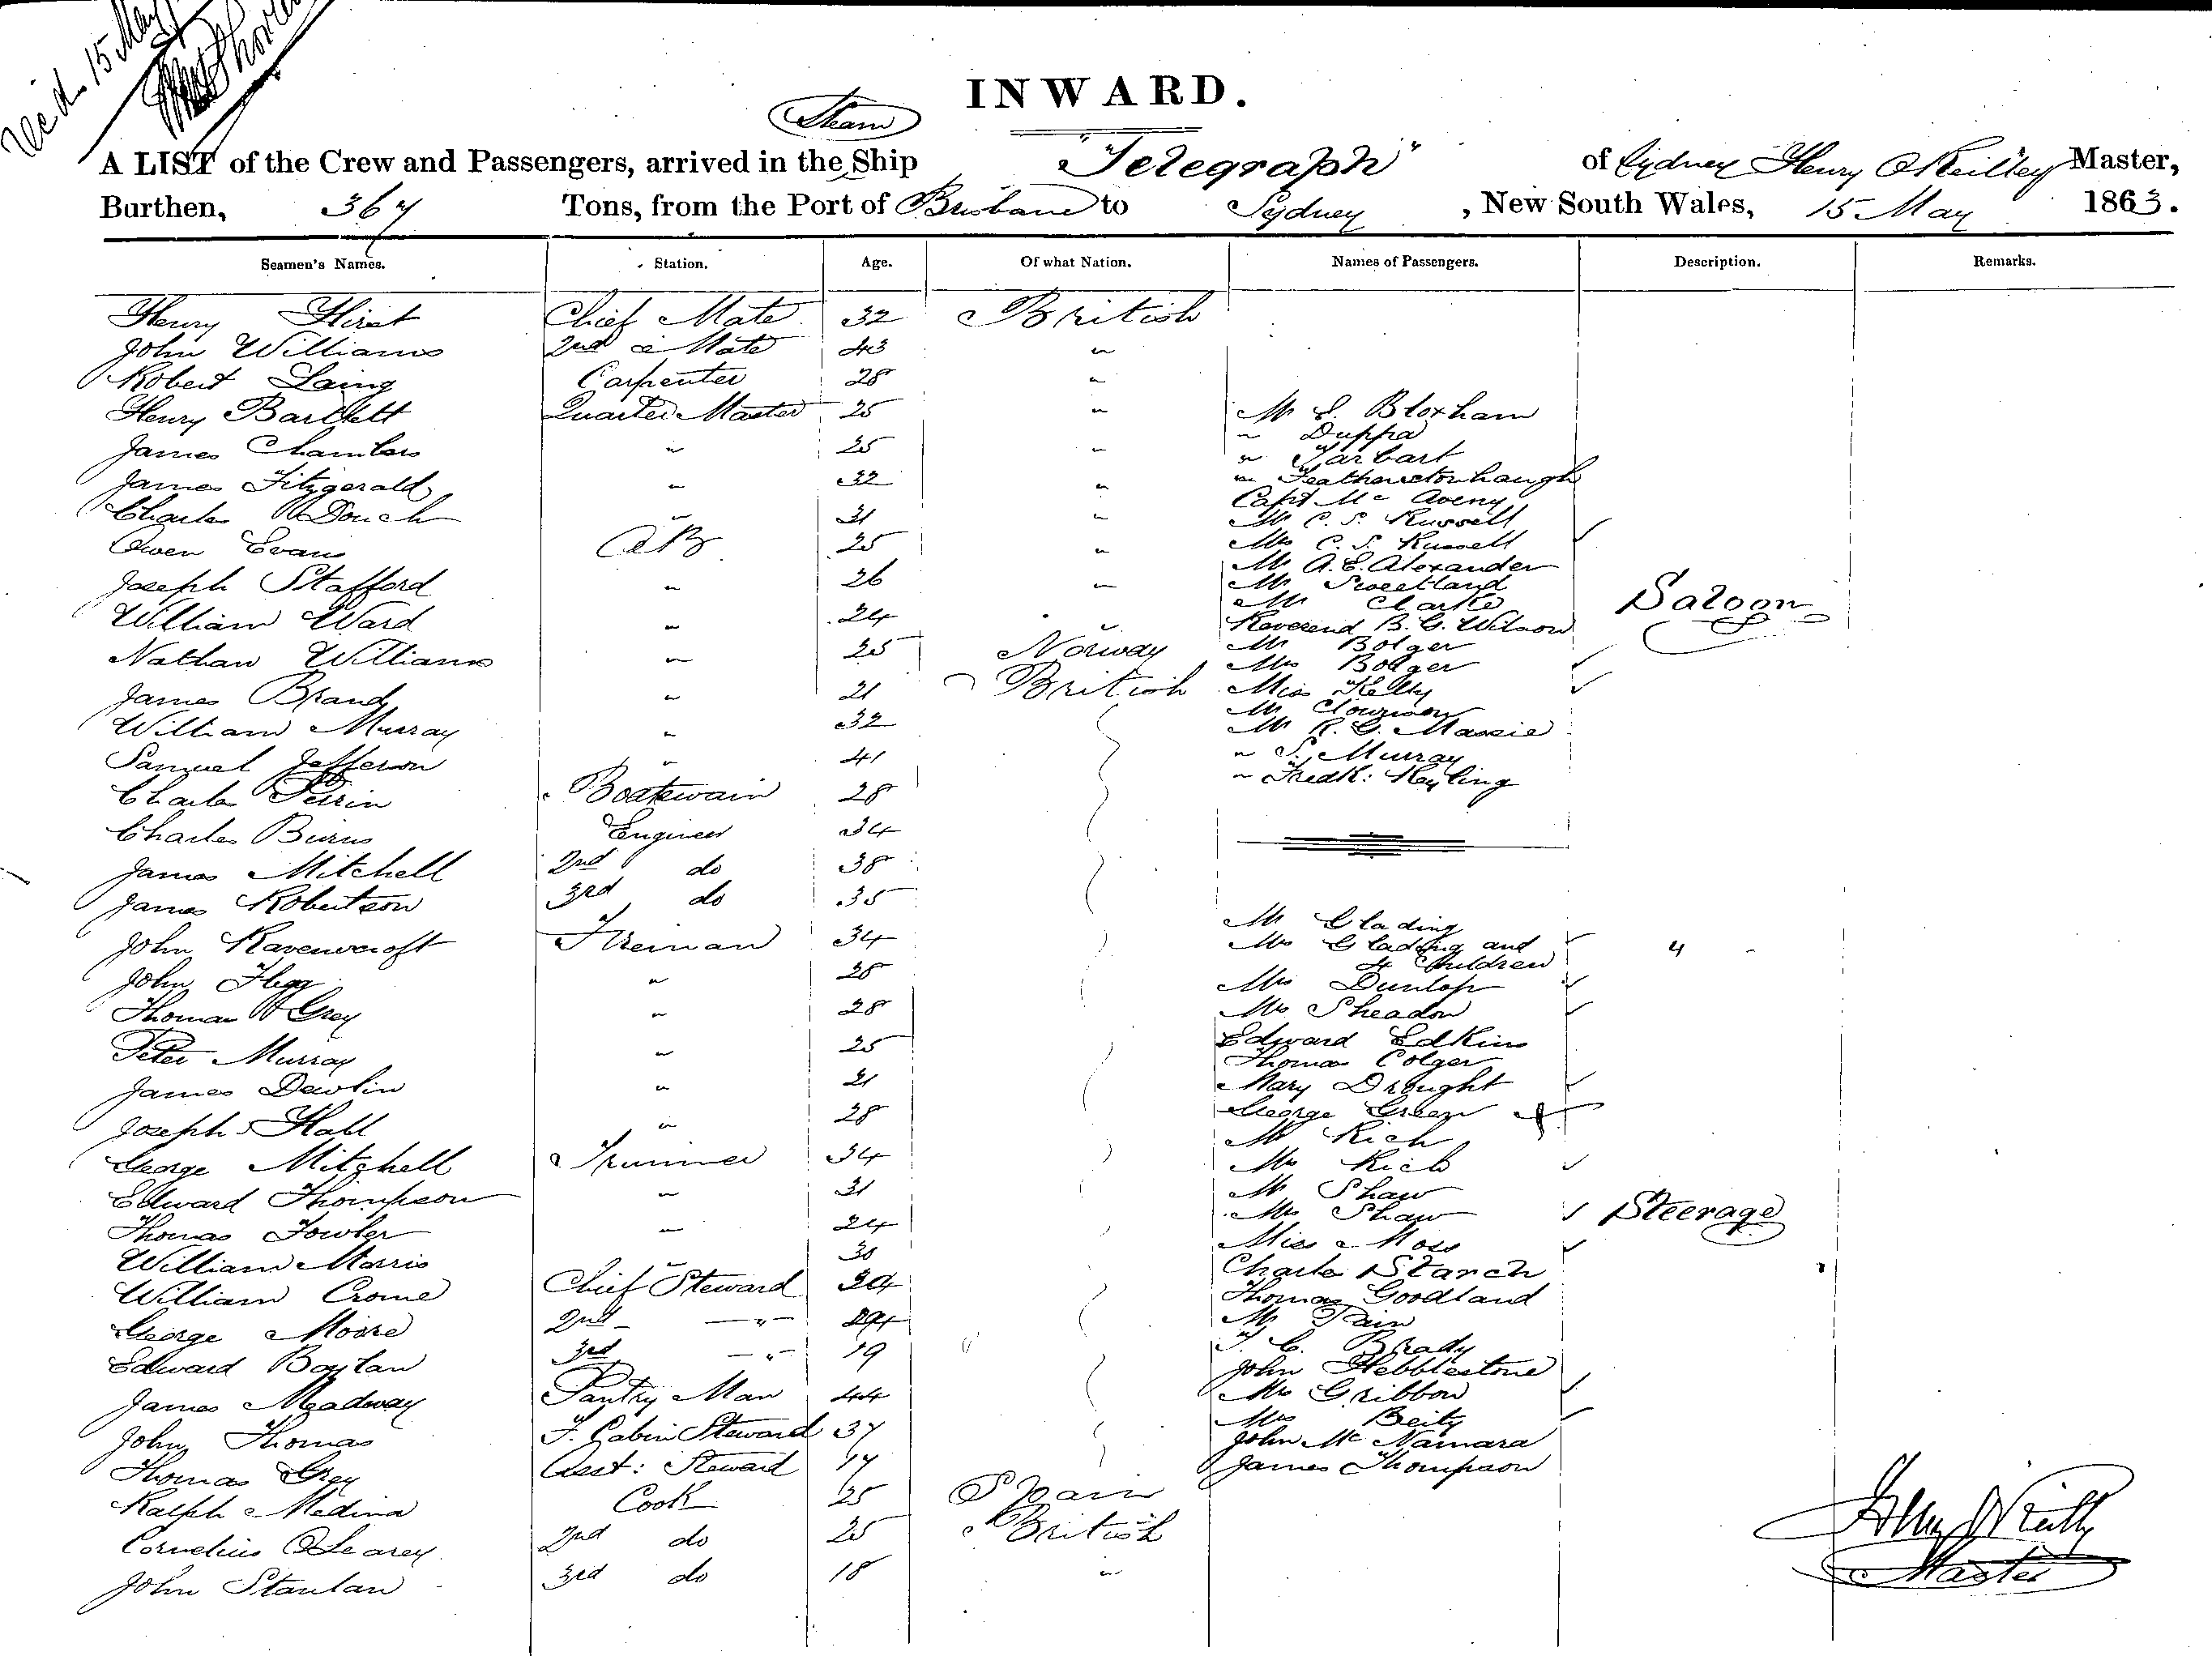 Rec'd. 15 May
INWARD.
Steam
A LIST of the Crew and Passengers, arrived in the Ship "Telegraph" of Sydney Henry O'Reilley Master,
Burthen, 367 Tons, from the Port of Brisbane to Sydney, New South Wales, 15 May 1863.
Seamen's Names. Station. Age. Of what Nation. Names of Passengers. Description. Remarks.
Henry Hirst Chief Mate 32 British
John Williams 2nd Mate 43 "
Robert Laing Carpenter 28 "
Henry Bartlett Quarter Master 25 "
James Chambers " 25 "
James Fitzgerald " 32 "
Charles Douch " 31 "
Owen Evans AB 25 "
Joseph Stafford " 26 "
William Ward " 24 "
Nathan Williams " 25 Norway
James Brand " 21 British
William Murray " 32
Samuel Jefferson " 41
Charles Perrin Boatswain 28
Charles Burns Engineer 34
James Mitchell 2nd do 38
James Robertson 3rd do 35
John Ravenscroft Fireman 34
John Flegg " 28
Thomas Grey " 28
Peter Murray " 25
James Dewlin " 21
Joseph Hall " 28
George Mitchell Trimmer 34
Edward Thompson " 31
Thomas Fowler " 24
William Morris " 30
William Crome Chief Steward
George Moore 2nd "
Edward Boylan 3rd " 19
James Meadway Pantry Man 44
John Thomas F. Cabin Steward 37
Thomas Grey Asst: Steward 17
Ralph Medina Cook 25 Spain
Cornelius O'Learey 2nd do 25 British
John Stanlan 3rd do 18 "
Mr E. Bloxham
" Duppa
" Tarbart
" Featherstonhaugh
Capt Mc Aveny
Mr C. S. Russell
Mrs C. S. Russell
Mr A. E. Alexander
Mr Sweetland
Mr Clarke
Reverend B. G. Wilson
Mr Bolger
Mrs Bolger
Miss Kelly
Mr
Mr R. G. Massie
" S. Murray
" Fredk: Keyling
Saloon
Mr Glading
Mrs Glading and 4
4 Children
Mrs Dunlop
Mrs Sheadon
Edward Edkins
Thomas Colger
Mary Drought
George Green
Mr Rich
Mrs Rich
Mr Shaw
Mrs Shaw
Miss Moss
Charles Starch
Thomas Goodland
Mr Pain
T. C. Brady
John Hebblestone
Mrs Gribbon
Mrs Beity
John Mc Namara
James Thompson
Steerage
Henry O'Reilly
Master